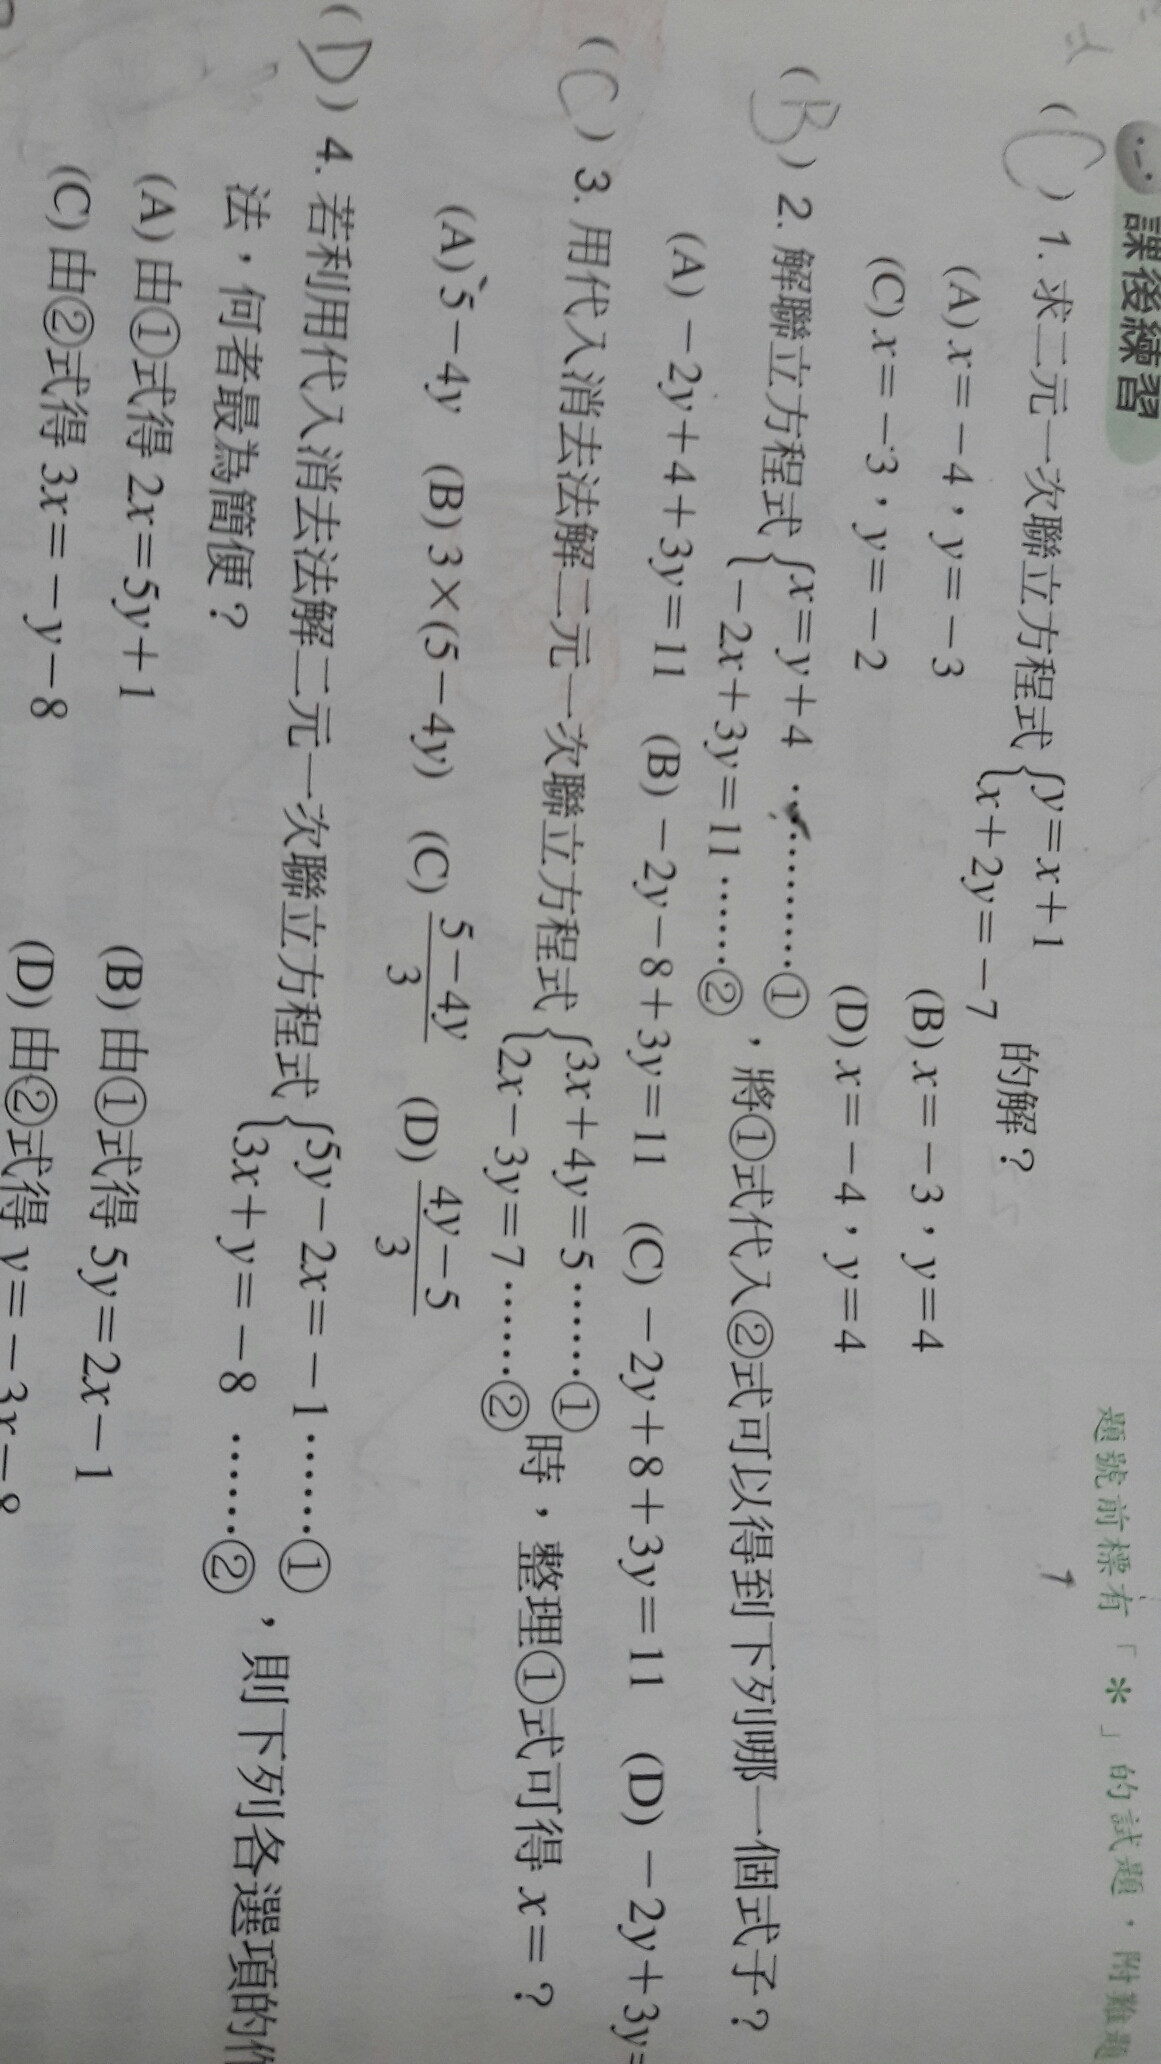 課後練習
題號前標有「*」的試題，附難題
(C) 1. 求二元一次聯立方程式 { y=x+1
x+2y=-7 的解？
(A) x=-4，y=-3 (B) x=-3，y=4
(C) x=-3，y=-2 (D) x=-4，y=4
(B) 2. 解聯立方程式 { x=y+4 …………①
-2x+3y=11 ……② ，將①式代入②式可以得到下列哪一個式子？
(A) -2y+4+3y=11 (B) -2y-8+3y=11 (C) -2y+8+3y=11 (D) -2y+3y=
(C) 3. 用代入消去法解二元一次聯立方程式 { 3x+4y=5……①
2x-3y=7……② 時，整理①式可得 x=？
(A) 5-4y (B) 3×(5-4y) (C) (5-4y)/3 (D) (4y-5)/3
(D) 4. 若利用代入消去法解二元一次聯立方程式 { 5y-2x=-1……①
3x+y=-8 ……② ，則下列各選項的作
法，何者最為簡便？
(A) 由①式得 2x=5y+1 (B) 由①式得 5y=2x-1
(C) 由②式得 3x=-y-8 (D) 由②式得 y=-3x-8